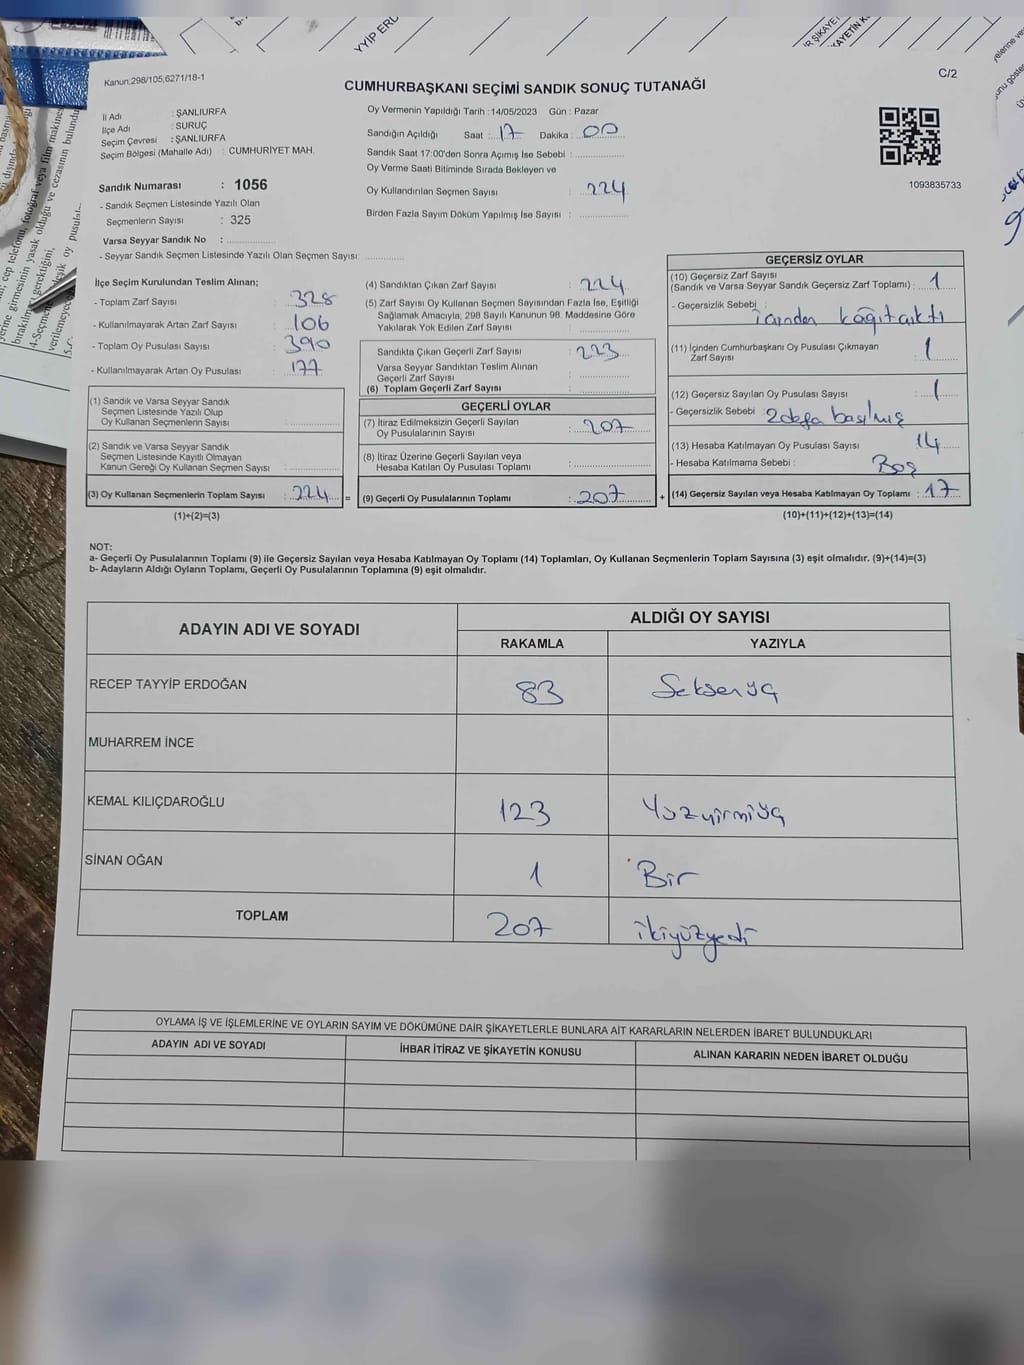 C/2
Kanun:298/105;6271/18-1
CUMHURBAŞKANI SEÇİMİ SANDIK SONUÇ TUTANAĞI
İl Adı : ŞANLIURFA
İlçe Adı : SURUÇ
Seçim Çevresi : ŞANLIURFA
Seçim Bölgesi (Mahalle Adı) : CUMHURİYET MAH.
Sandık Numarası : 1056
- Sandık Seçmen Listesinde Yazılı Olan
Seçmenlerin Sayısı : 325
Varsa Seyyar Sandık No :
- Seyyar Sandık Seçmen Listesinde Yazılı Olan Seçmen Sayısı:
Oy Vermenin Yapıldığı Tarih : 14/05/2023 Gün : Pazar
Sandığın Açıldığı Saat : 17 Dakika : 00
Sandık Saat 17:00'den Sonra Açımış İse Sebebi :
Oy Verme Saati Bitiminde Sırada Bekleyen ve
Oy Kullandırılan Seçmen Sayısı : 224
Birden Fazla Sayım Döküm Yapılmış İse Sayısı :
1093835733
İlçe Seçim Kurulundan Teslim Alınan;
- Toplam Zarf Sayısı : 328
- Kullanılmayarak Artan Zarf Sayısı : 106
- Toplam Oy Pusulası Sayısı : 390
- Kullanılmayarak Artan Oy Pusulası : 177
(1) Sandık ve Varsa Seyyar Sandık
Seçmen Listesinde Yazılı Olup
Oy Kullanan Seçmenlerin Sayısı :
(2) Sandık ve Varsa Seyyar Sandık
Seçmen Listesinde Kayıtlı Olmayan
Kanun Gereği Oy Kullanan Seçmen Sayısı :
(3) Oy Kullanan Seçmenlerin Toplam Sayısı : 224 =
(1)+(2)=(3)
(4) Sandıktan Çıkan Zarf Sayısı : 224
(5) Zarf Sayısı Oy Kullanan Seçmen Sayısından Fazla İse, Eşitliği
Sağlamak Amacıyla, 298 Sayılı Kanunun 98. Maddesine Göre
Yakılarak Yok Edilen Zarf Sayısı :
Sandıkta Çıkan Geçerli Zarf Sayısı : 223
Varsa Seyyar Sandıktan Teslim Alınan
Geçerli Zarf Sayısı :
(6) Toplam Geçerli Zarf Sayısı :
GEÇERLİ OYLAR
(7) İtiraz Edilmeksizin Geçerli Sayılan
Oy Pusulalarının Sayısı : 207
(8) İtiraz Üzerine Geçerli Sayılan veya
Hesaba Katılan Oy Pusulaları Toplamı :
(9) Geçerli Oy Pusulalarının Toplamı : 207 +
GEÇERSİZ OYLAR
(10) Geçersiz Zarf Sayısı
(Sandık ve Varsa Seyyar Sandık Geçersiz Zarf Toplamı) : 1
- Geçersizlik Sebebi :
(11) İçinden Cumhurbaşkanı Oy Pusulası Çıkmayan
Zarf Sayısı : 1
(12) Geçersiz Sayılan Oy Pusulası Sayısı : 1
- Geçersizlik Sebebi : 2 defa basılmış
(13) Hesaba Katılmayan Oy Pusulası Sayısı : 14
- Hesaba Katılmama Sebebi : Boş
(14) Geçersiz Sayılan veya Hesaba Katılmayan Oy Toplamı : 17
(10)+(11)+(12)+(13)=(14)
NOT:
a- Geçerli Oy Pusulalarının Toplamı (9) ile Geçersiz Sayılan veya Hesaba Katılmayan Oy Toplamı (14) Toplamları, Oy Kullanan Seçmenlerin Toplam Sayısına (3) eşit olmalıdır. (9)+(14)=(3)
b- Adayların Aldığı Oyların Toplamı, Geçerli Oy Pusulalarının Toplamına (9) eşit olmalıdır.
ADAYIN ADI VE SOYADI ALDIĞI OY SAYISI
RAKAMLA YAZIYLA
RECEP TAYYİP ERDOĞAN 83 Seksenüç
MUHARREM İNCE
KEMAL KILIÇDAROĞLU 123 Yüzyirmiüç
SİNAN OĞAN 1 Bir
TOPLAM 207 ikiyüzyedi
OYLAMA İŞ VE İŞLEMLERİNE VE OYLARIN SAYIM VE DÖKÜMÜNE DAİR ŞİKAYETLERLE BUNLARA AİT KARARLARIN NELERDEN İBARET BULUNDUKLARI
ADAYIN ADI VE SOYADI İHBAR İTİRAZ VE ŞİKAYETİN KONUSU ALINAN KARARIN NEDEN İBARET OLDUĞU